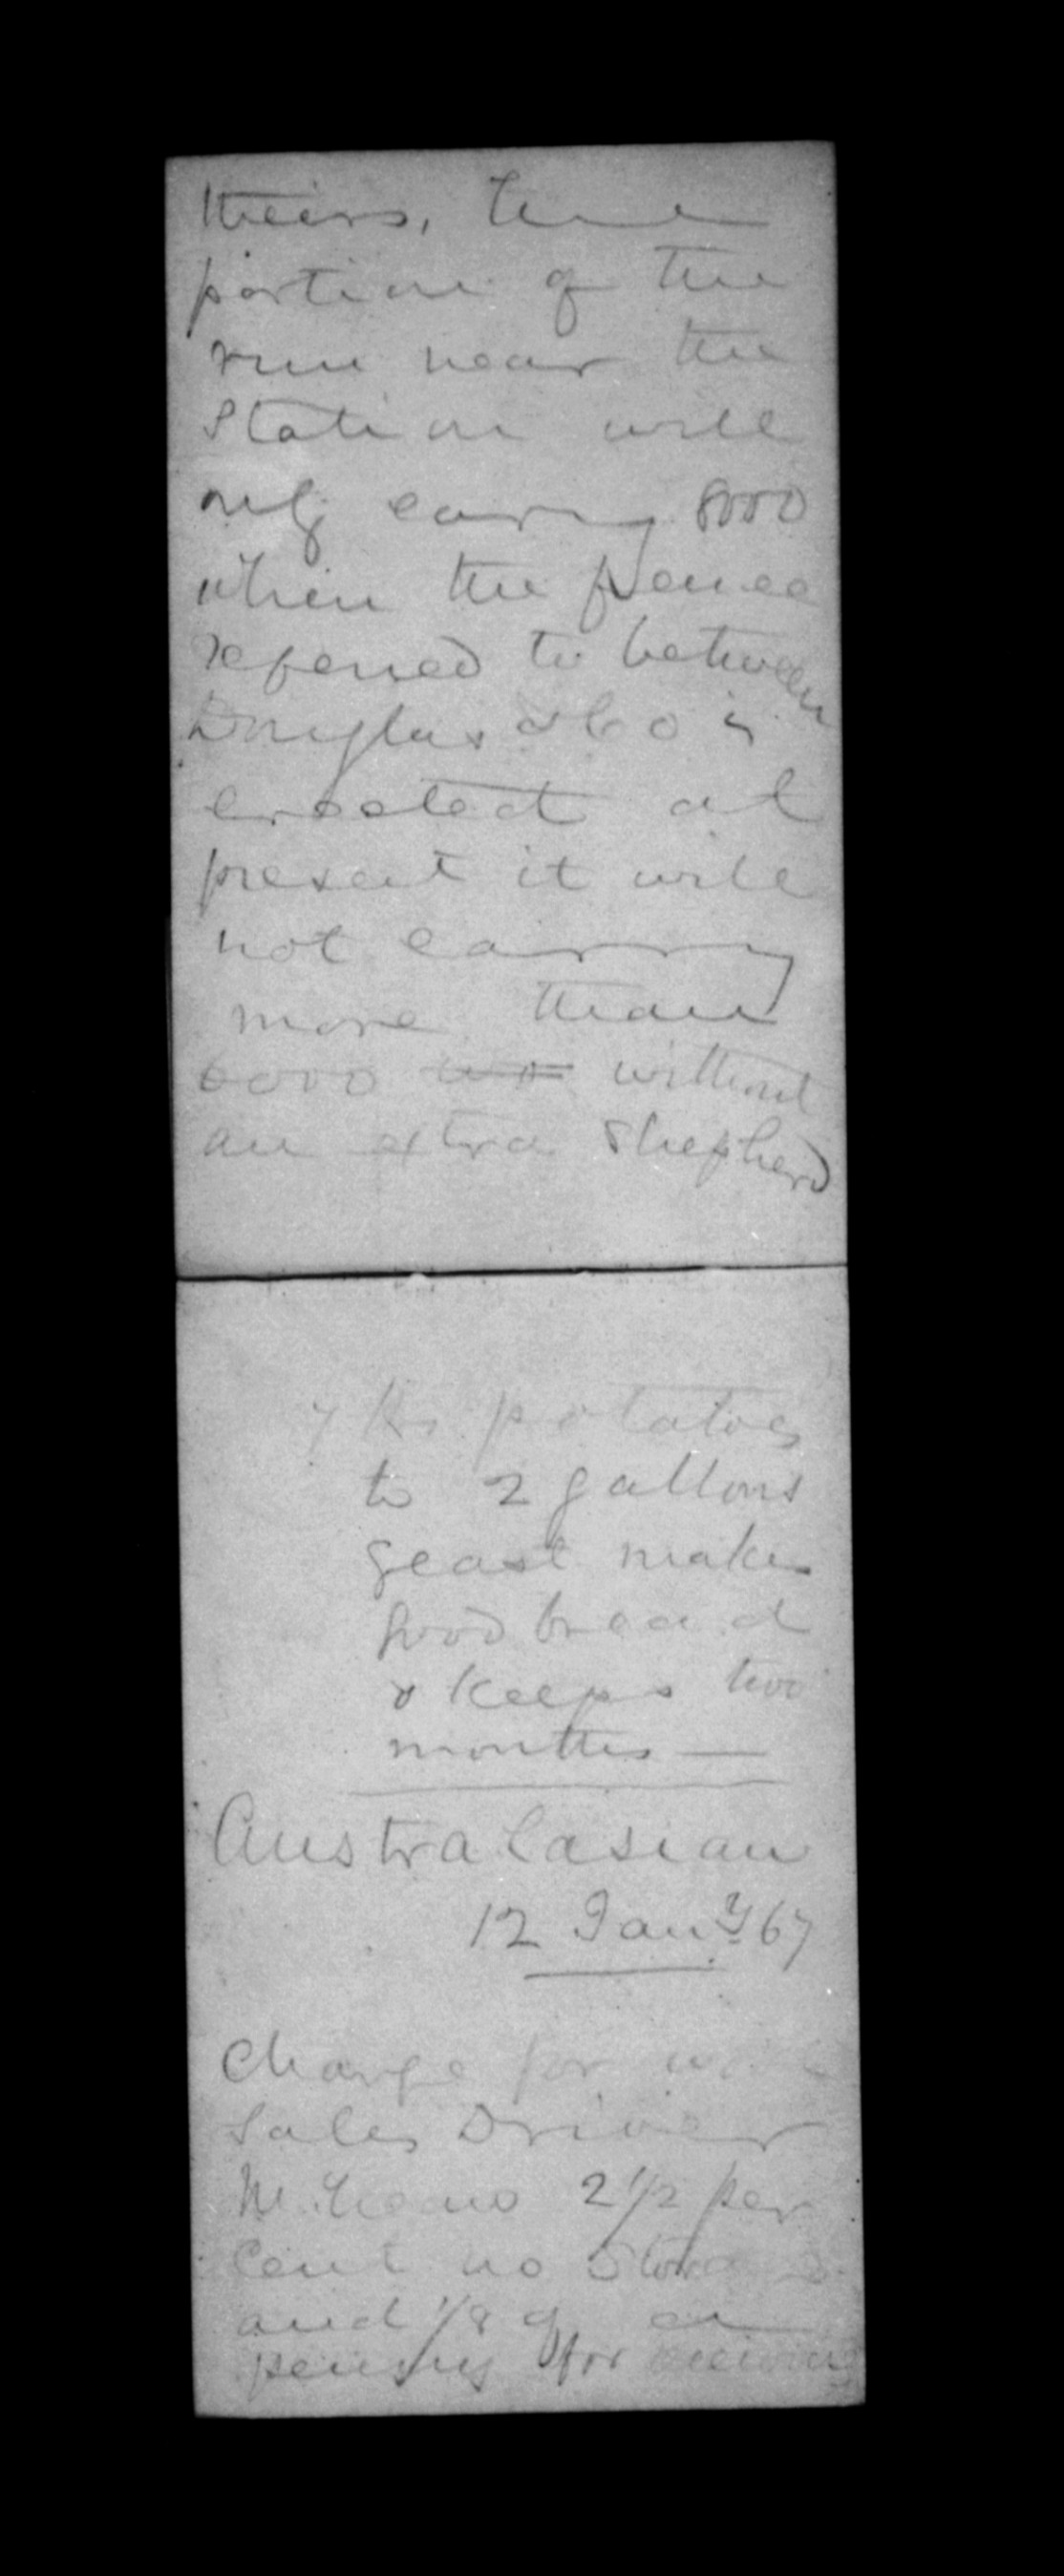 theirs, the
portion of the
run near the
Station will
only carry 8000
when the fence
referred to between
Douglas & Co is
erected at
present it will
not carry
more than
6000 without
an extra Shepherd
7 lbs potatoes
to 2 gallons
yeast makes
good bread
& keeps two
months —
Australasian
12 Jany 67
Charge for
Sales Driver
McLeans 2 1/2 per
Cent no Storage
and 1/8 of a
penny for